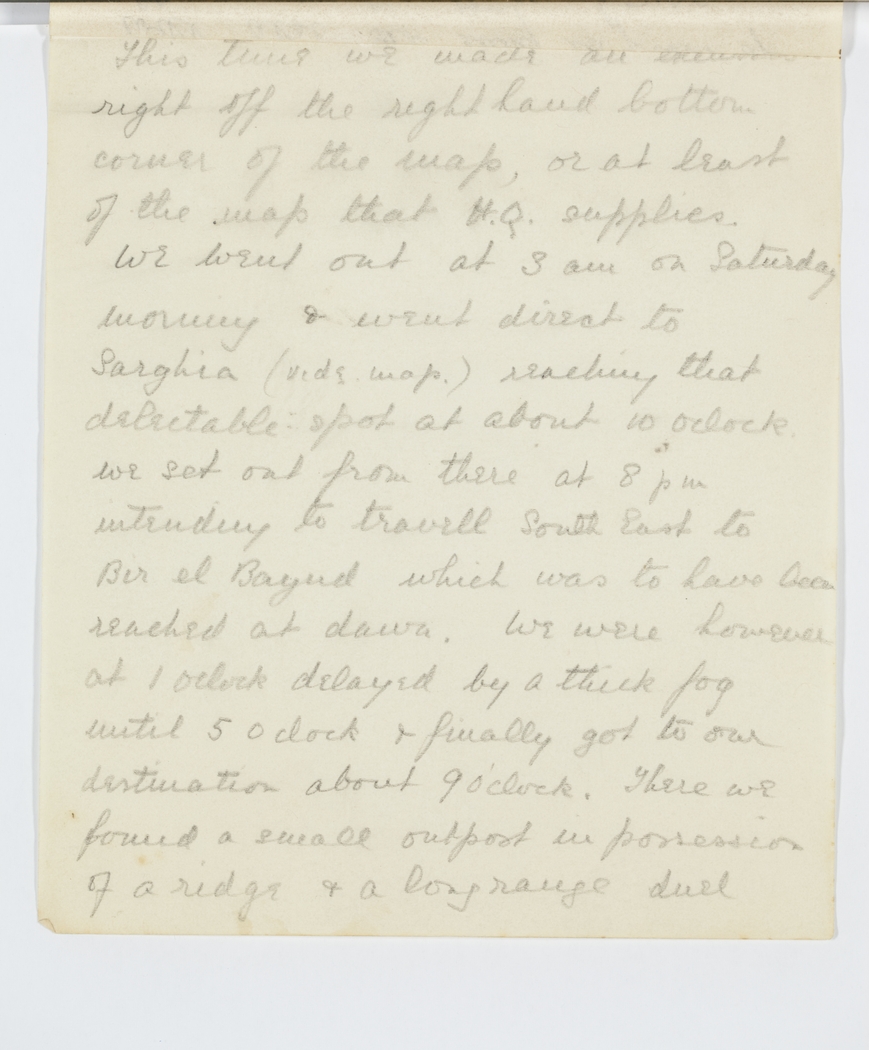 This time we made an excursion
right off the right hand bottom
corner of the map, or at least
of the map that H.Q. supplies.
We went out at 3 am on Saturday
morning & went direct to
Sarghia (vide map.) reaching that
delectable spot at about 10 oclock.
we set out from there at 8 pm
intending to travell South East to
Bir el Bayud which was to have been
reached at dawn. We were however
at 1 oclock delayed by a thick fog
until 5 oclock & finally got to our
destination about 9 o'clock. There we
found a small outpost in possession
of a ridge & a long range duel